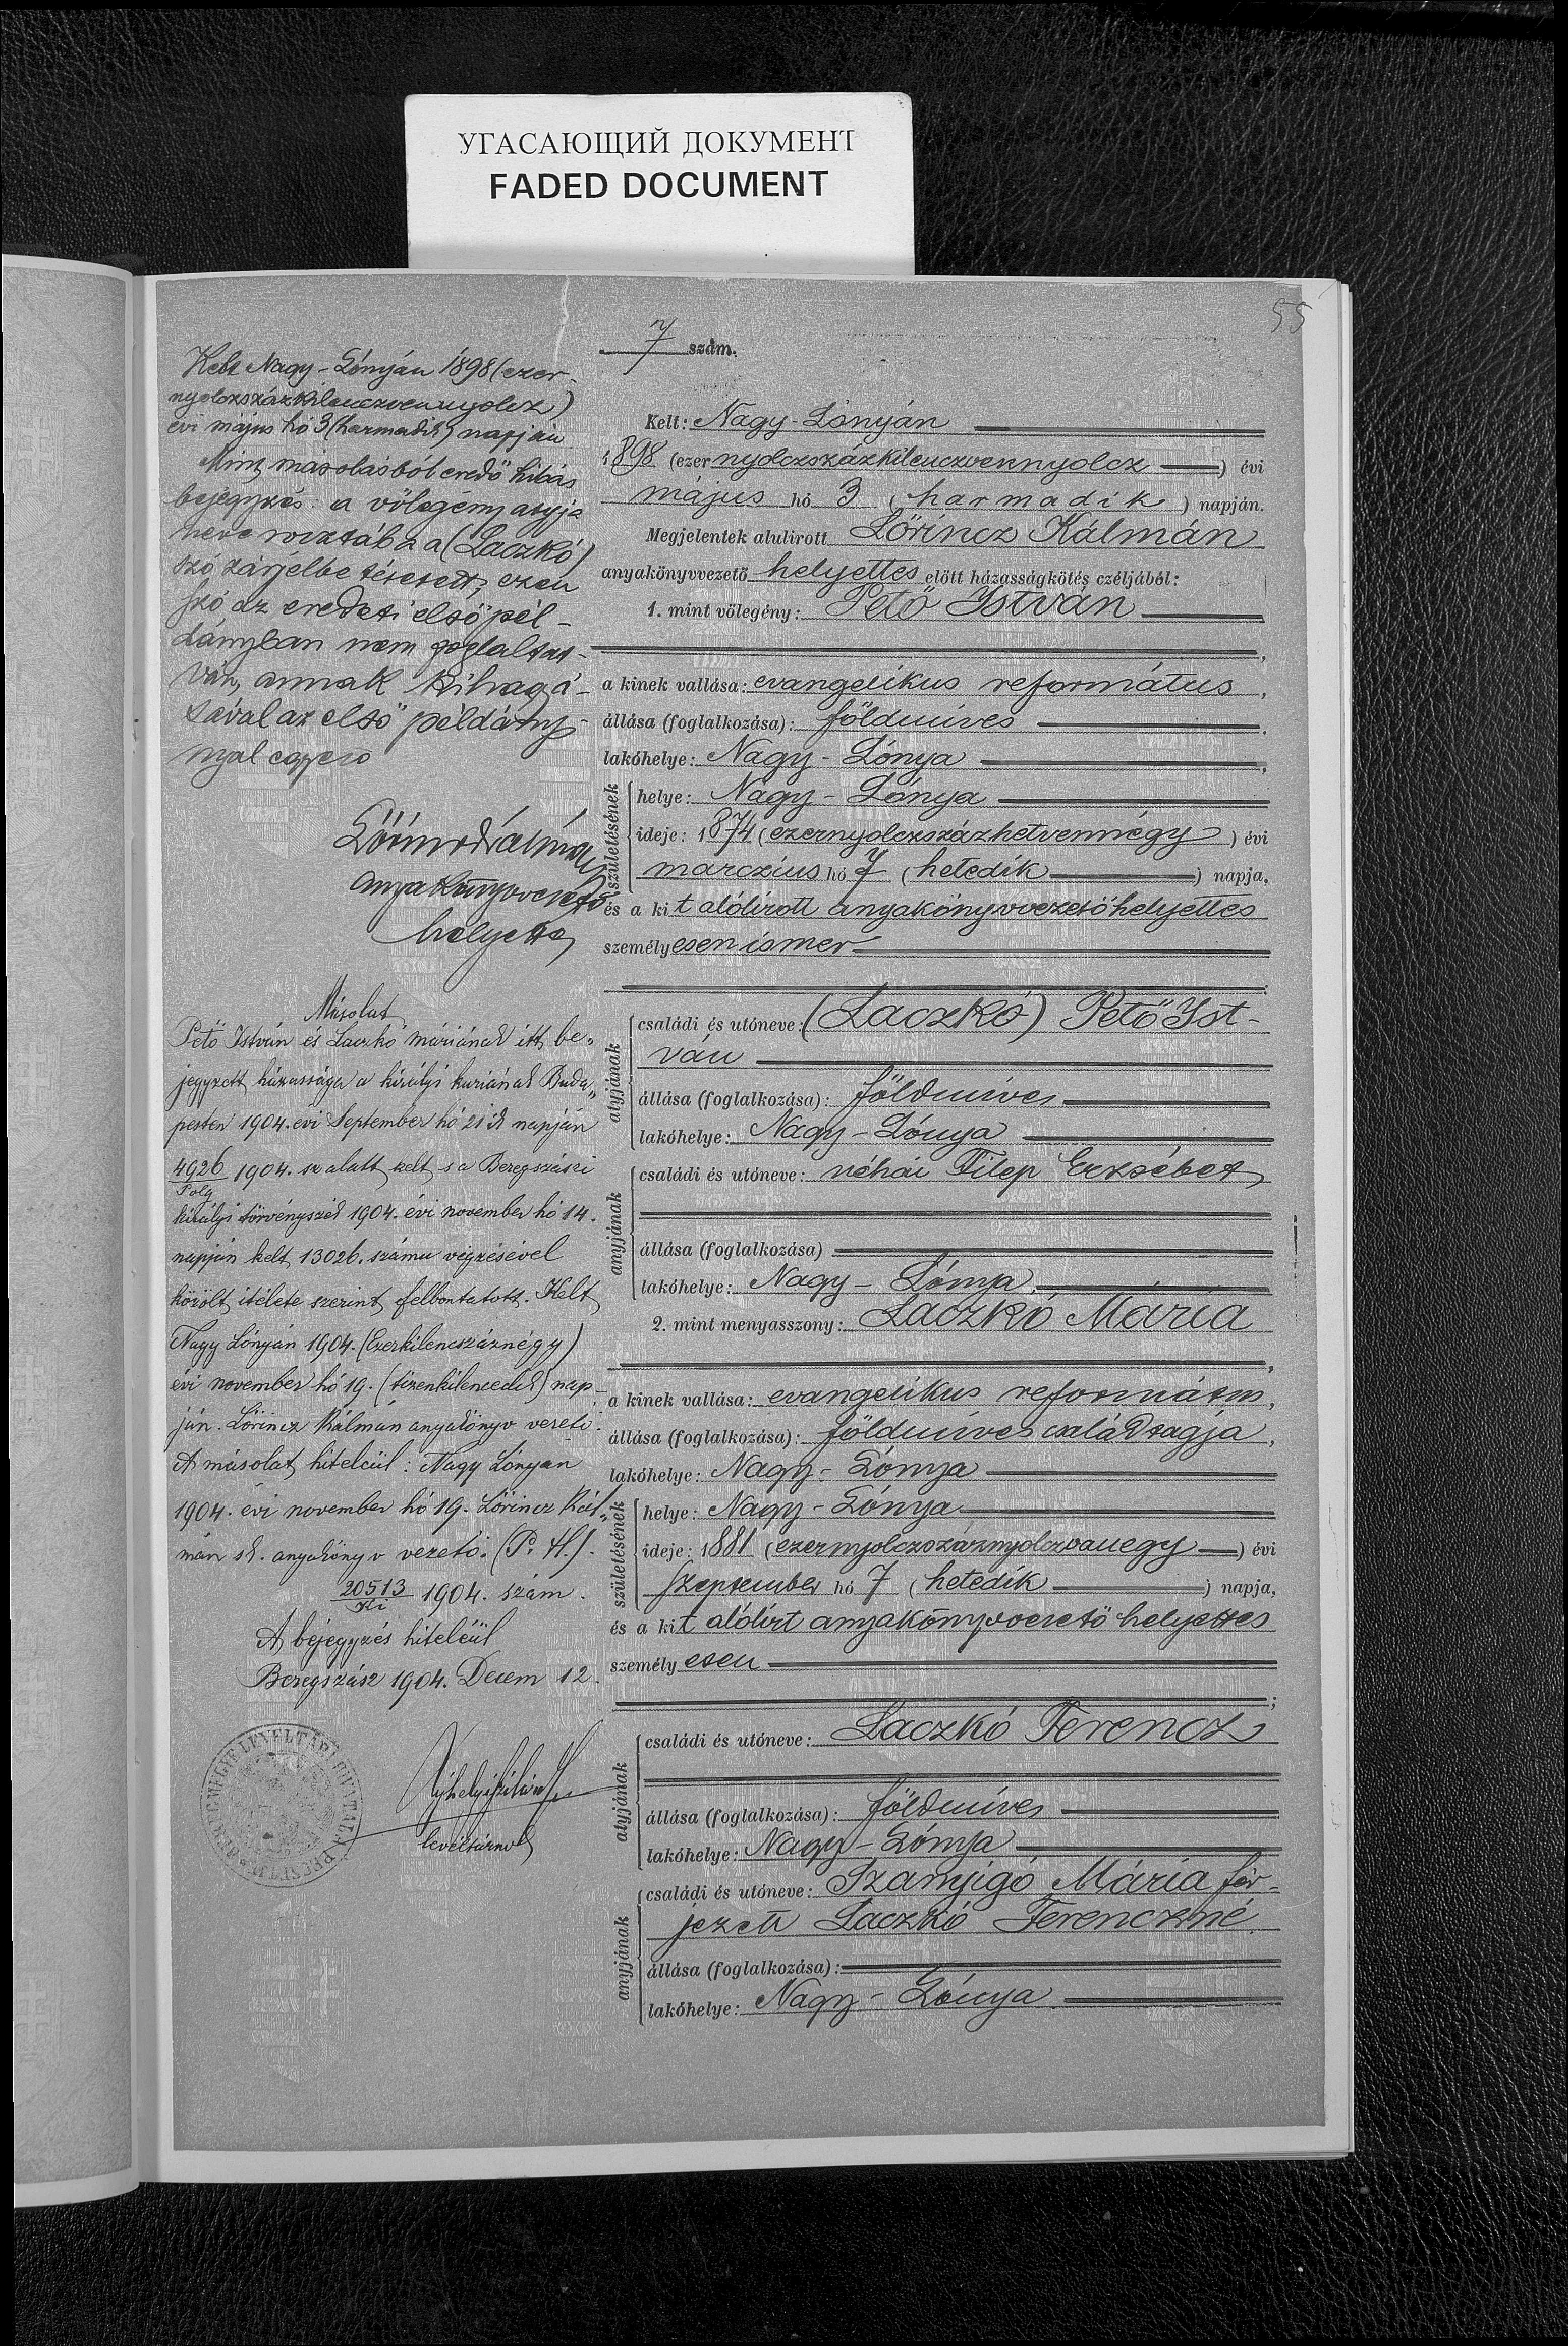 УГАСАЮЩИЙ ДОКУМЕНТ
FADED DOCUMENT
55
7 szám.
Kelt Nagy-Lónyán 1898 (ezer-
nyolczszázkilenczvennyolcz)
évi május hó 3 (harmadik) napján
Mint másolásból eredő hibás
bejegyzés: a vőlegény atyja
neve rovatába a (Laczkó)
szó zárjelbe tétetett, ezen
szó az eredeti első pél-
dányban nem foglaltat-
ván, annak kihagá-
sával az első példány-
nyal egyező
Lőrincz Kálmán
anyakönyvvezető
helyettes
Másolat
Pető István és Laczkó máriának itt be-
jegyzett házassága a királyi kuriának Buda-
pesten 1904. évi September hó 21 ik napján
4926/Polg 1904. sz alatt kelt s a Beregszászi
királyi törvényszék 1904. évi november hó 14.
napján kelt 13026. számu végzésével
közölt itélete szerint felbontatott. Kelt
Nagy Lónyán 1904. (Ezerkilenczáznégy)
évi november hó 19. (tizenkilenczedik) nap-
ján. Lőrincz Kálmán anyakönyv vezető.
A másolat hiteléül: Nagy Lónyan
1904. évi november hó 19. Lőrincz Kál-
mán sk. anyakönyv vezető. (P. H.).
20513/Ki 1904. szám.
A bejegyzés hiteléül
Beregszász 1904. Decem 12.
levéltárnok
Kelt: Nagy-Lónyán
1898 (ezer nyolczszázkilenczvennyolcz) évi
május hó 3 (harmadik) napján.
Megjelentek alulirott Lőrincz Kálmán
anyakönyvvezető helyettes előtt házasságkötés czéljából:
1. mint vőlegény: Pető István
a kinek vallása: evangelikus református,
állása (foglalkozása): földmíves
lakóhelye: Nagy-Lónya
születésének
helye: Nagy-Lónya
ideje: 1874 (ezernyolczszázhetvennégy) évi
marczius hó 7 (hetedik) napja,
és a kit alólírott anyakönyvvezetőhelyettes
személyesen ismer
atyjának
családi és utóneve: (Laczkó) Pető Ist-
ván
állása (foglalkozása): földmíves
lakóhelye: Nagy-Lónya
anyjának
családi és utóneve: néhai Filep Erzsébet
állása (foglalkozása)
lakóhelye: Nagy-Lónya
2. mint menyasszony: Laczkó Mária
a kinek vallása: evangelikus református,
állása (foglalkozása): földmíves családtagja,
lakóhelye: Nagy-Lónya
születésének
helye: Nagy-Lónya
ideje: 1881 (ezernyolczszáznyolczvanegy) évi
szeptember hó 7 (hetedik) napja,
és a kit alólírt anyakönyvvezető helyettes
személyesen
atyjának
családi és utóneve: Laczkó Ferencz
állása (foglalkozása): földmíves
lakóhelye: Nagy-Lónya
anyjának
családi és utóneve: Szanyigó Mária fér-
jezett Laczkó Ferenczné
állása (foglalkozása):
lakóhelye: Nagy-Lónya